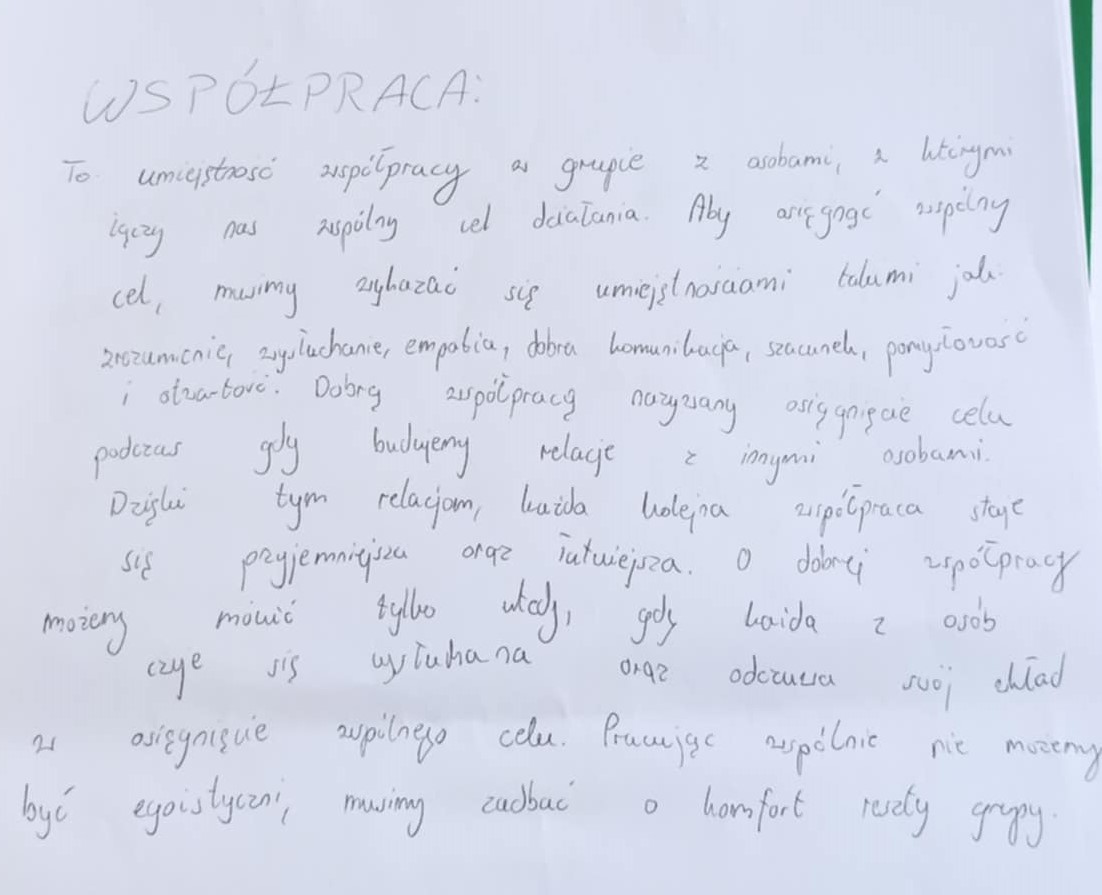 WSPÓŁPRACA:
To umiejstność współpracy w grupie z osobami, z którymi
łączy nas wspólny cel działania. Aby osięgnąć wspólny
cel, musimy wykazać się umiejętnościami takimi jak
zrozumienie, wysłuchanie, empatia, dobra komunikacja, szacunek, pomysłowość
i otwartość. Dobrą współpracą nazywany osiągnięcie celu
podczas gdy budujemy relacje z innymi osobami.
Dzięki tym relacjom, każda kolejna współpraca staje
się przyjemniejsza oraz łatwiejsza. O dobrej współpracy
możemy mówić tylko wtedy, gdy każda z osób
czuje się wysłuchana oraz odczuwa swój wkład
w osięgnięcie wspólnego celu. Pracując wspólnie nie możemy
być egoistyczni, musimy zadbać o komfort reszty grupy.